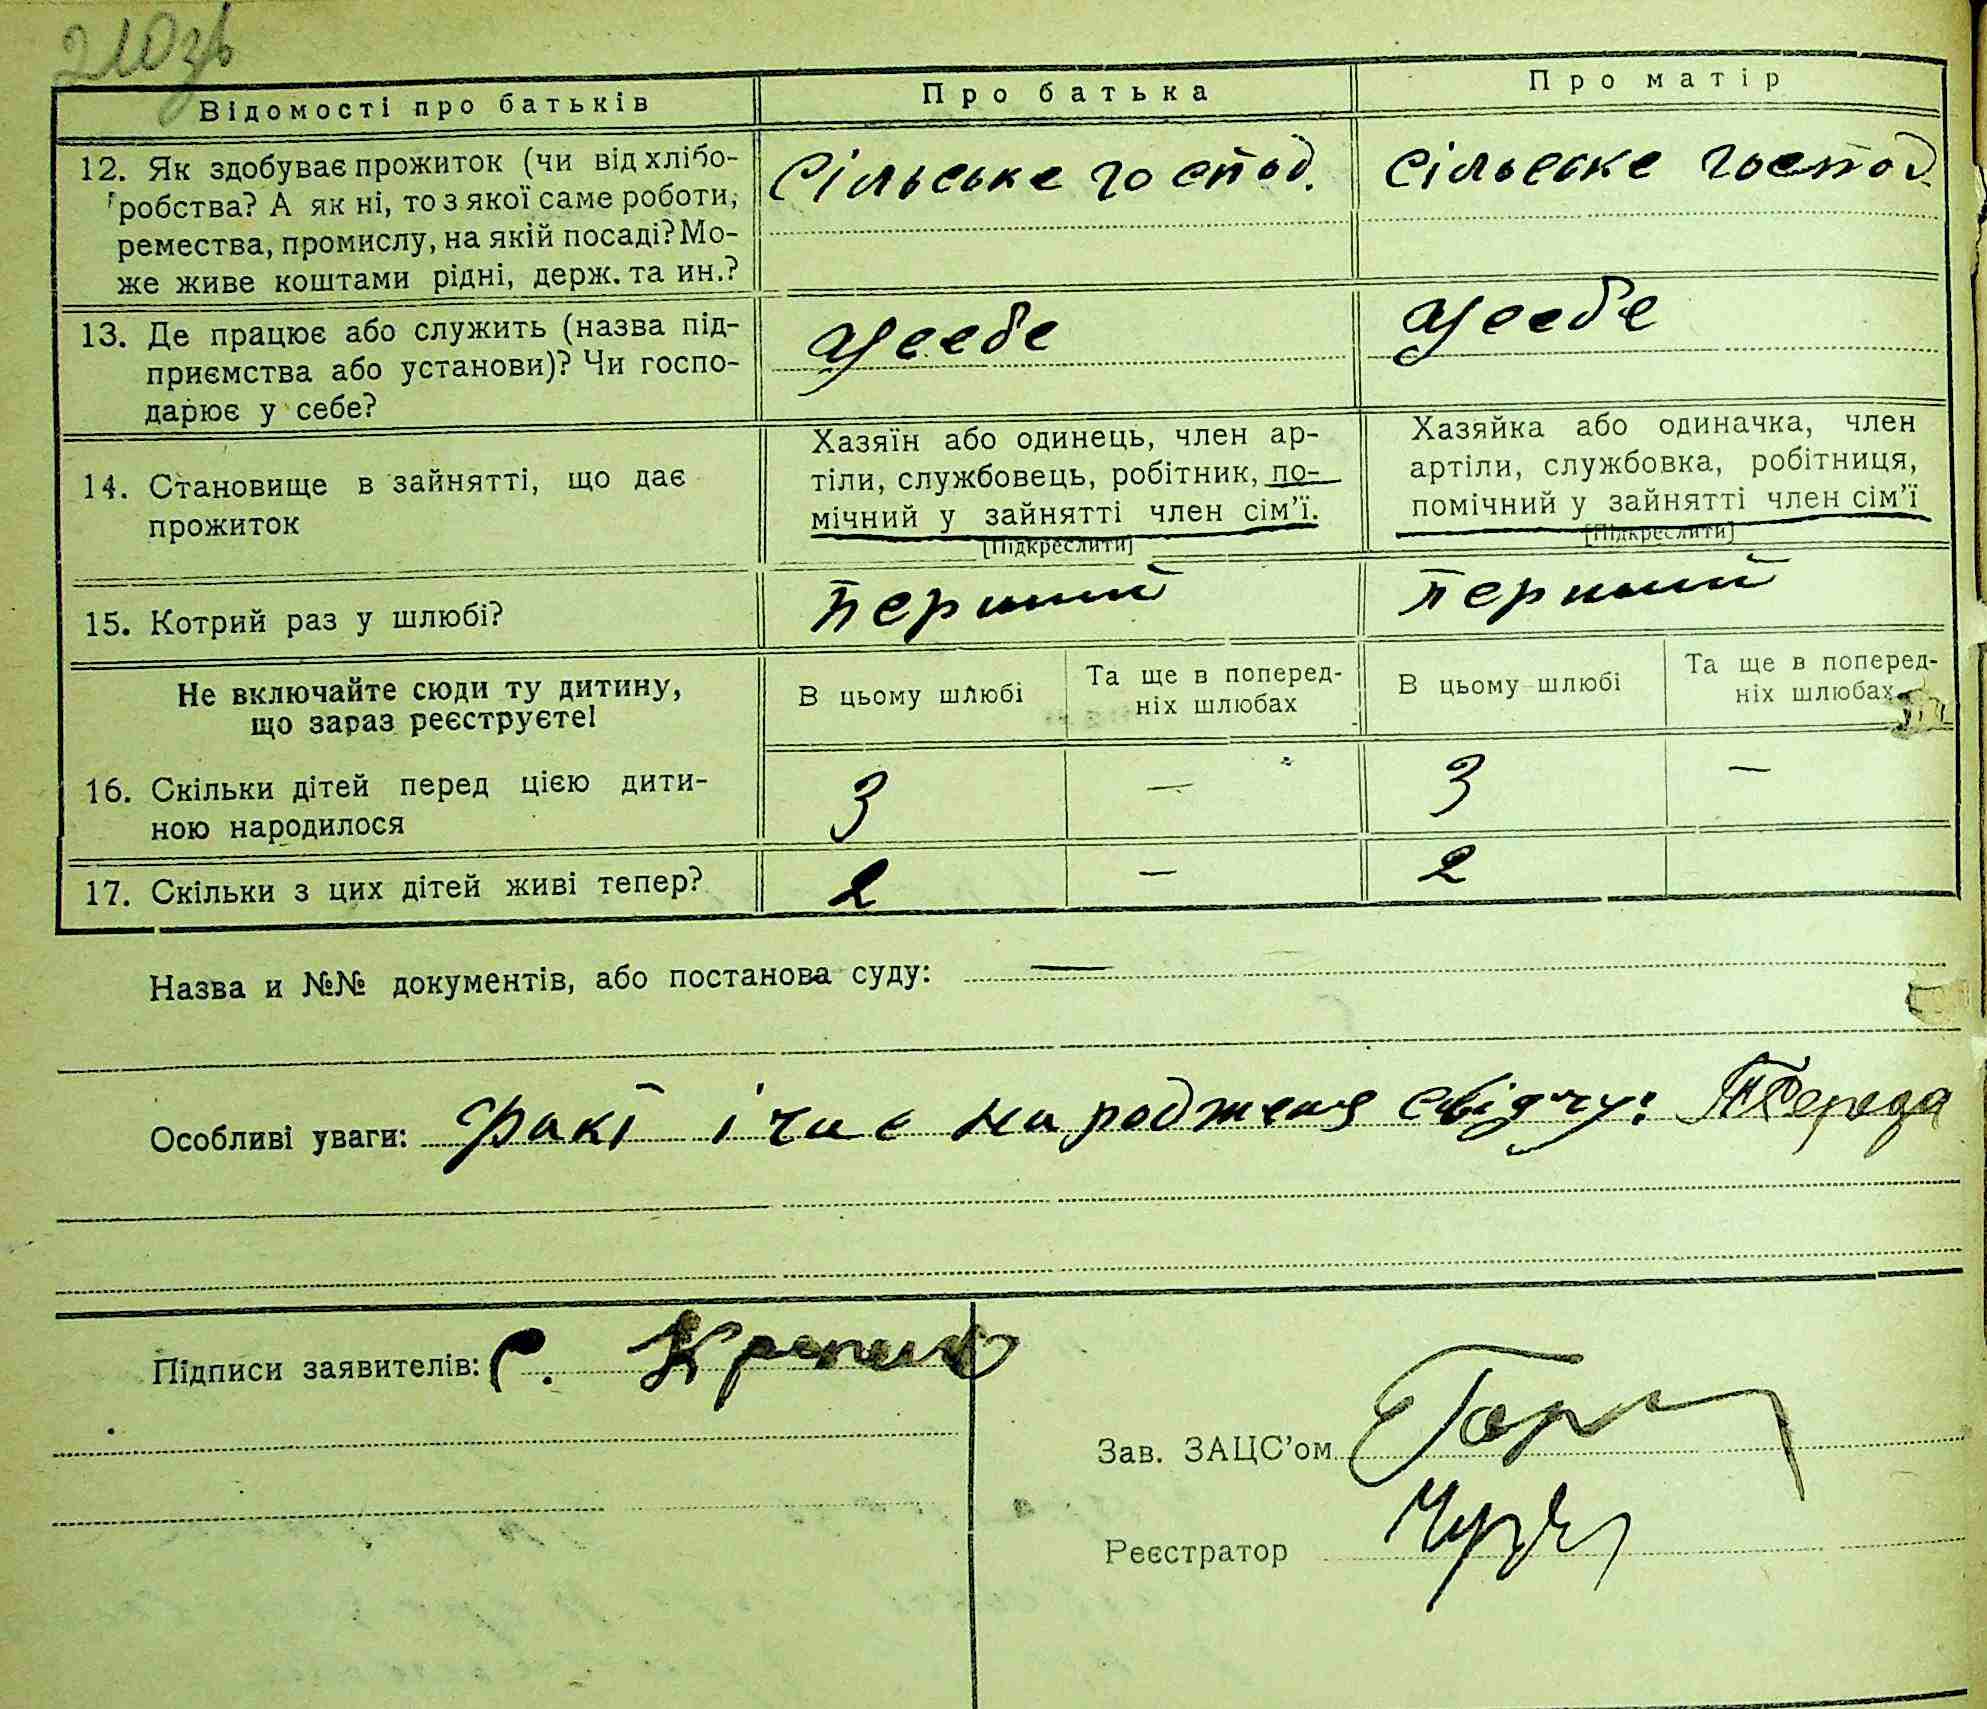 210зв
Відомості про батьків
Про батька
Про матір
12. Як здобуває прожиток (чи від хлібо-
робства? А як ні, то з якої саме роботи,
ремества, промислу, на якій посаді? Мо-
же живе коштами рідні, держ. та ин.?
Сільське господ.
Сільське господ.
13. Де працює або служить (назва під-
приємства або установи)? Чи госпо-
дарює у себе?
усебе
усебе
14. Становище в зайнятті, що дає
прожиток
Хазяїн або одинець, член ар-
тіли, службовець, робітник, по-
мічний у зайнятті член сім’ї.
[Підкреслити]
Хазяйка або одиначка, член
артіли, службовка, робітниця,
помічний у зайнятті член сім’ї
[Підкреслити]
15. Котрий раз у шлюбі?
перший
перший
Не включайте сюди ту дитину,
що зараз реєструєте!
В цьому шлюбі
Та ще в поперед-
ніх шлюбах
В цьому шлюбі
Та ще в поперед-
ніх шлюбах
16. Скільки дітей перед цією дити-
ною народилося
3 — 3 —
17. Скільки з цих дітей живі тепер?
2 — 2
Назва и №№ документів, або постанова суду: —
Особливі уваги: Факт і час народження свідчу:
Підписи заявителів: С.
Зав. ЗАЦС’ом
Реєстратор